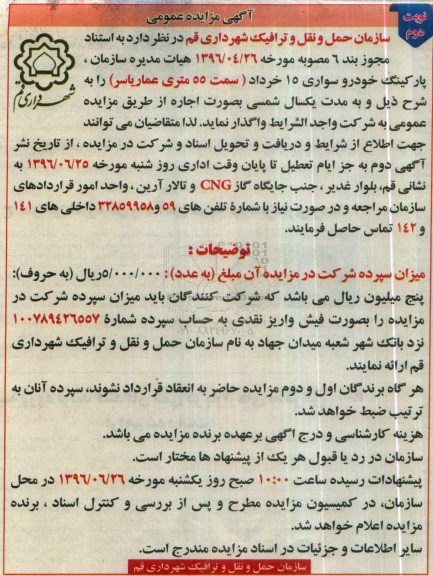 آگهی مزایده عمومی
نوبت دوم
سازمان حمل و نقل و ترافیک شهرداری قم در نظر دارد به استناد
مجوز بند ۶ مصوبه مورخه ۱۳۹۶/۰۴/۲۶ هیات مدیره سازمان ،
پارکینگ خودرو سواری ۱۵ خرداد ( سمت ۵۵ متری عماریاسر) را به
شرح ذیل و به مدت یکسال شمسی بصورت اجاره از طریق مزایده
عمومی به شرکت واجد الشرایط واگذار نماید. لذا متقاضیان می توانند
جهت اطلاع از شرایط و دریافت و تحویل اسناد و شرکت در مزایده ، از تاریخ نشر
آگهی دوم به جز ایام تعطیل تا پایان وقت اداری روز شنبه مورخه ۱۳۹۶/۰۶/۲۵ به
نشانی قم، بلوار غدیر ، جنب جایگاه گاز CNG و تالار آرین ، واحد امور قراردادهای
سازمان مراجعه و در صورت نیاز با شمارۀ تلفن های ۵۹ و۳۲۸۵۹۹۵۸ داخلی های ۱۴۱
و ۱۴۲ تماس حاصل فرمایند.
شهرداری قم
توضیحات :
میزان سپرده شرکت در مزایده آن مبلغ (به عدد) : ۵/۰۰۰/۰۰۰ریال (به حروف):
پنج میلیون ریال می باشد که شرکت کنندگان باید میزان سپرده شرکت در
مزایده را بصورت فیش واریز نقدی به حساب سپرده شمارۀ ۱۰۰۷۸۹۴۲۶۵۵۷
نزد بانک شهر شعبه میدان جهاد به نام سازمان حمل و نقل و ترافیک شهرداری
قم ارائه نمایند.
هر گاه برندگان اول و دوم مزایده حاضر به انعقاد قرارداد نشوند، سپرده آنان به
ترتیب ضبط خواهد شد.
هزینه کارشناسی و درج آگهی برعهده برنده مزایده می باشد.
سازمان در رد یا قبول هر یک از پیشنهاد ها مختار است.
پیشنهادات رسیده ساعت ۱۰:۰۰ صبح روز یکشنبه مورخه ۱۳۹۶/۰۶/۲۶ در محل
سازمان، در کمیسیون مزایده مطرح و پس از بررسی و کنترل اسناد ، برنده
مزایده اعلام خواهد شد.
سایر اطلاعات و جزئیات در اسناد مزایده مندرج است.
سازمان حمل و نقل و ترافیک شهرداری قم